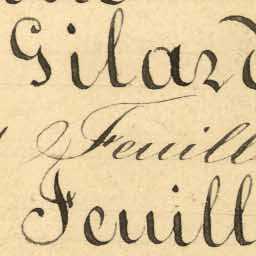 Gilard
Feuill
Feuill